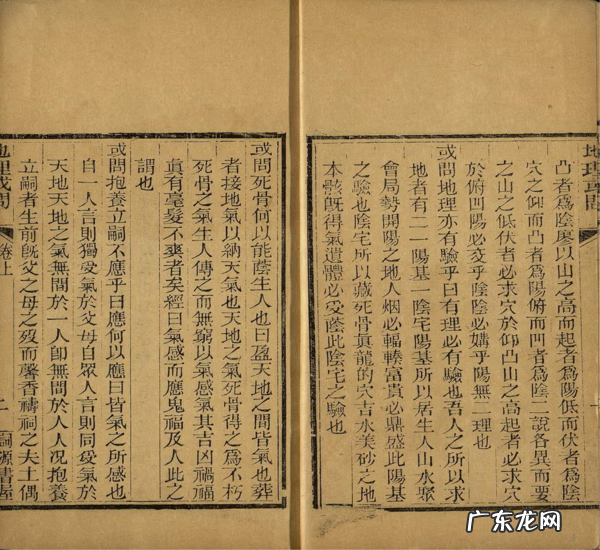 地理或問
凸者爲陰廖以山之高而起者爲陽低而伏者爲陰
穴之仰而凸者爲陽俯而凹者爲陰二說各異而要
之山之低伏者必求穴於仰凸山之高起者必求穴
於俯凹陽必交乎陰陰必媾乎陽無二理也
或問地理亦有驗乎曰有理必有驗也吾人之所以求
地者有二一陽基一陰宅陽基所以居生人山水聚
會局勢開陽之地人烟必輻輳富貴必鼎盛此陽基
之驗也陰宅所以藏死骨眞龍的穴吉水美砂之地
本骸旣得氣遺體必受蔭此陰宅之驗也
或問死骨何以能蔭生人也曰盈天地之間皆氣也葬
者接地氣以納天氣也天地之氣死骨得之爲不朽
死骨之氣生人傳之而無窮以氣感氣其吉凶禍福
眞有毫髮不爽者矣經曰氣感而應鬼福及人此之
謂也
或問抱養立嗣不應乎曰應何以應曰皆氣之所感也
自一人言則獨受氣於父母自眾人言則同受氣於
天地天地之氣無間於一人卽無間於人人况抱養
立嗣者生前旣父之母之歿而馨香禱祠之夫土偶
地理或問
卷上
二
嗣源書屋
广东龙网